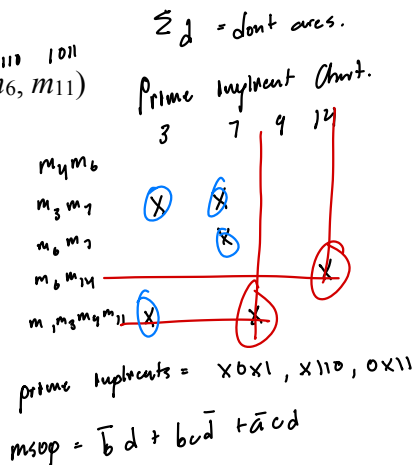 Σd = dont cares.
110 1011
6, m11)
Prime Implicent Chart.
3 7 9 14
m4m6
m3m7 X X
m6m7 X
m6m14 X
m1m3m9m11 X X
prime implicents = X0X1, X110, 0X11
msop = b̅d + bcd̅ + a̅cd